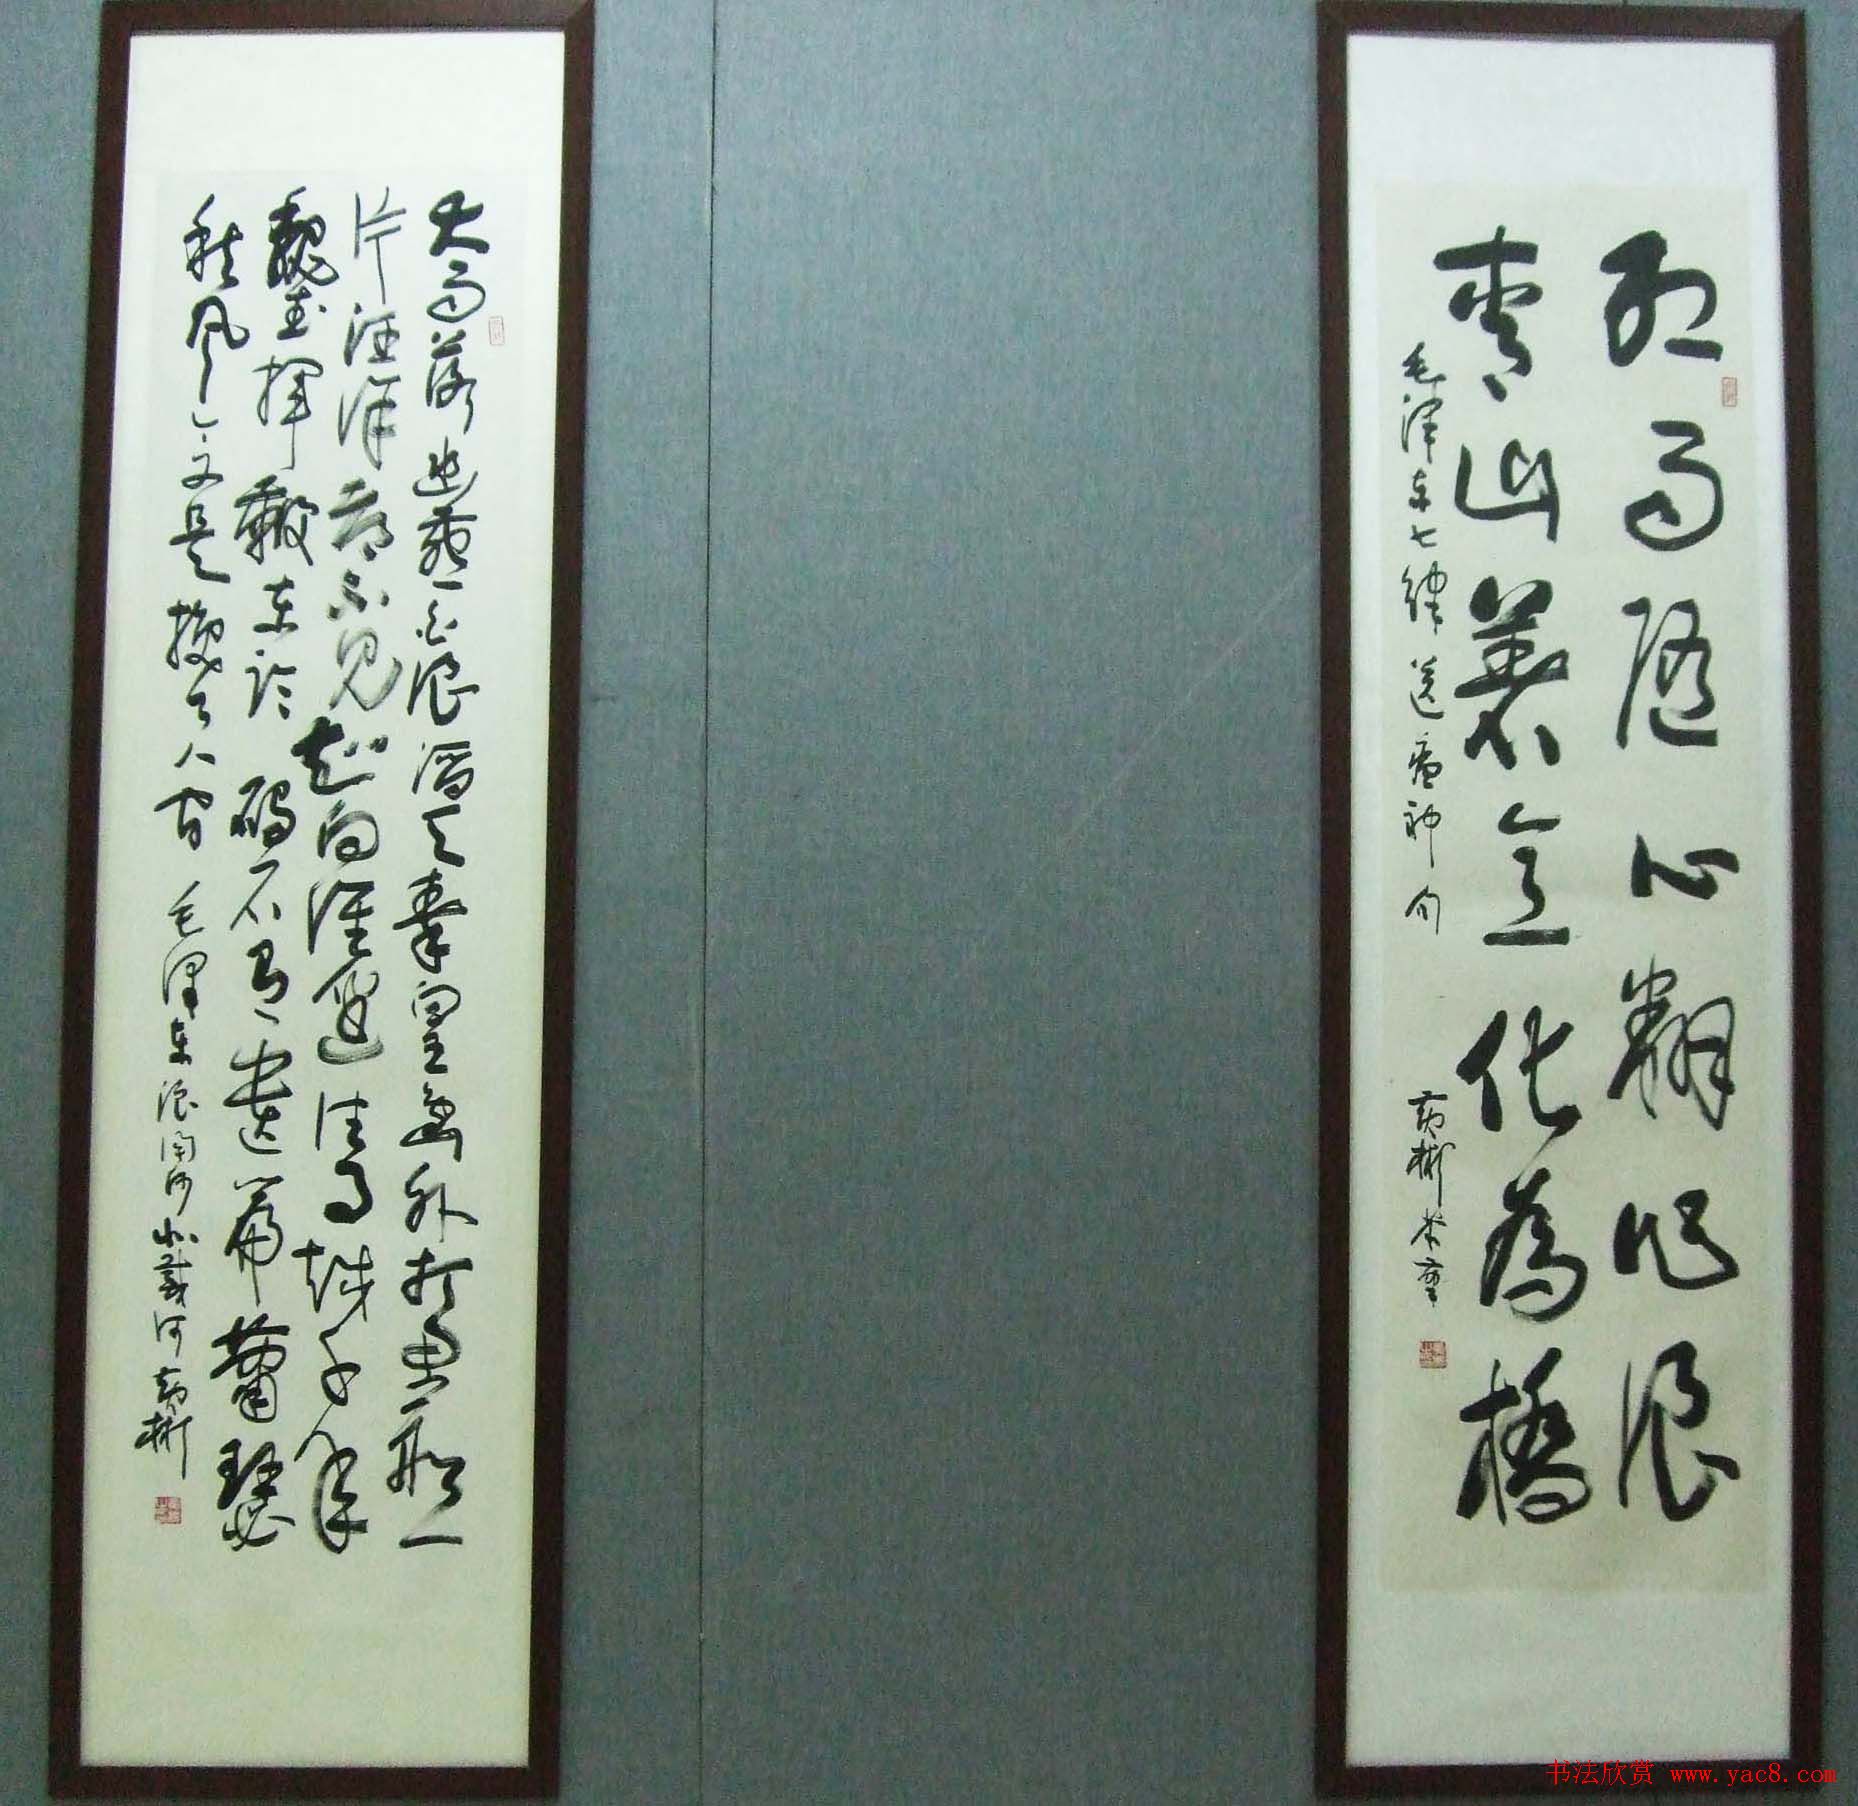 红雨随心翻作浪
青山着意化為橋
毛泽东七律送瘟神句
黄彬
大雨落幽燕白浪滔天秦皇岛外打鱼船一
片汪洋都不见知向谁边往事越千年
魏武挥鞭东临碣石有遗篇萧瑟
秋风今又是换了人间 毛泽东浪淘沙北戴河 黄彬
书法欣赏 www.yac8.com